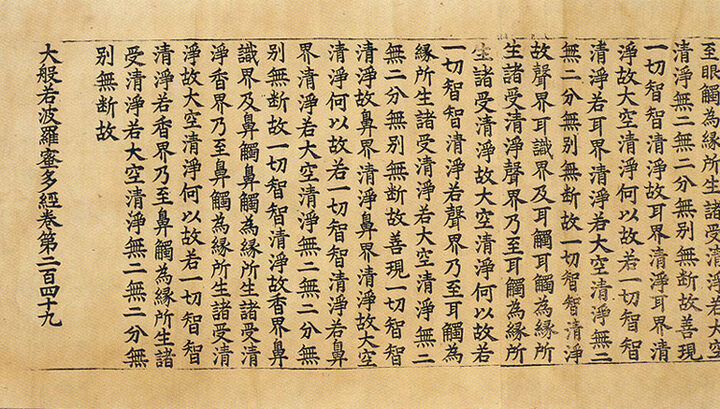 至眼觸為緣所生諸受清淨若大空
清淨無二無二分無別無断故善現
一切智智清淨故耳界清淨耳界清
淨故大空清淨何以故若一切智智
清淨若耳界清淨若大空清淨無二
無二分無別無断故一切智智清淨
故聲界耳識界及耳觸耳觸為緣所
生諸受清淨聲界乃至耳觸為緣所
生諸受清淨故大空清淨何以故若
一切智智清淨若聲界乃至耳觸為
緣所生諸受清淨若大空清淨無二
無二分無別無断故善現一切智智
清淨故鼻界清淨鼻界清淨故大空
清淨何以故若一切智智清淨若鼻
界清淨若大空清淨無二無二分無
別無断故一切智智清淨故香界鼻
識界及鼻觸鼻觸為緣所生諸受清
淨香界乃至鼻觸為緣所生諸受清
淨故大空清淨何以故若一切智智
清淨若香界乃至鼻觸為緣所生諸
受清淨若大空清淨無二無二分無
別無断故
大般若波羅蜜多經卷第二百四十九